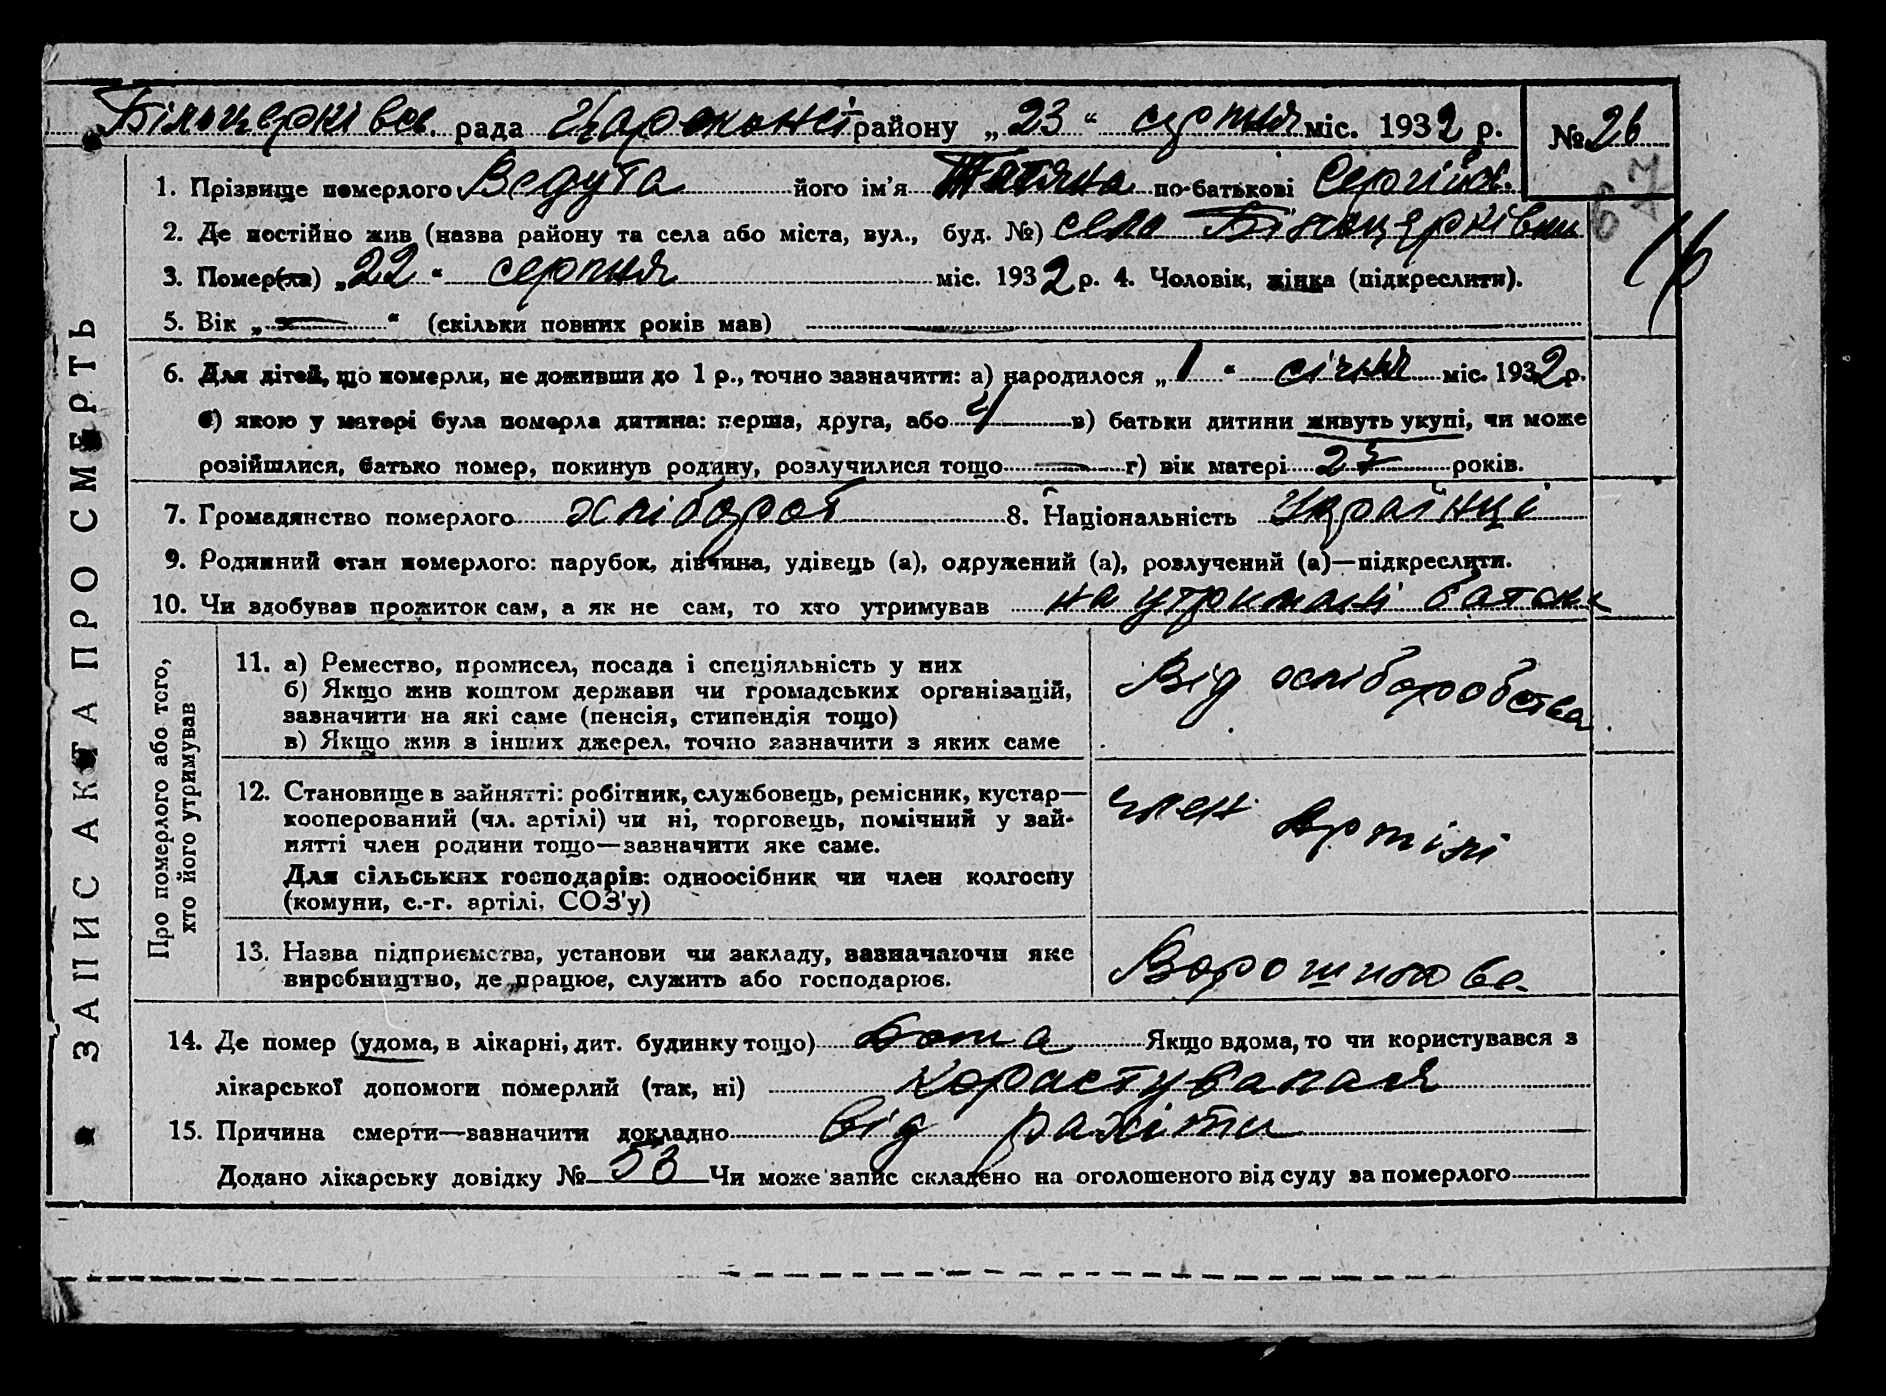 Білоцерківсь. рада району „23“ серпня міс. 1932 р. № 26
1. Прізвище померлого Ведута його ім’я Татяна по-батькові Сергійов.
2. Де постійно жив (назва району та села або міста, вул., буд. №) село Білоцерківка
3. Помер(ла) „22“ серпня міс. 1932 р. 4. Чоловік, жінка (підкреслити).
5. Вік „—“ (скільки повних років мав)
6. Для дітей, що померли, не доживши до 1 р., точно зазначити: а) народилося „1“ січня міс. 1932 р.
б) якою у матері була померла дитина: перша, друга, або 4 в) батьки дитини живуть укупі, чи може
розійшлися, батько помер, покинув родину, розлучилися тощо — г) вік матері 25 років.
7. Громадянство померлого хлібороб 8. Національність Українці
9. Родинний стан померлого: парубок, дівчина, удівець (а), одружений (а), розлучений (а)—підкреслити.
10. Чи здобував прожиток сам, а як не сам, то хто утримував на утримані батька
ЗАПИС АКТА ПРО СМЕРТЬ
Про померлого або того,
хто його утримував
11. а) Ремество, промисел, посада і спеціяльність у них
б) Якщо жив коштом держави чи громадських організацій,
зазначити на які саме (пенсія, стипендія тощо)
в) Якщо жив з інших джерел, точно зазначити з яких саме
Від хліборобства
12. Становище в зайнятті: робітник, службовець, ремісник, кустар—
кооперований (чл. артілі) чи ні, торговець, помічний у зай-
нятті член родини тощо—зазначити яке саме.
Для сільських господарів: одноосібник чи член колгоспу
(комуни, с.-г. артілі, СОЗ’у)
член Артілі
13. Назва підприємства, установи чи закладу, зазначаючи яке
виробництво, де працює, служить або господарює.
Ворошилова
14. Де помер (удома, в лікарні, дит. будинку тощо) дома Якщо вдома, то чи користувався з
лікарської допомоги померлий (так, ні) користувалася
15. Причина смерти—зазначити докладно від рахіти
Додано лікарську довідку № 53 Чи може запис складено на оголошеного від суду за померлого